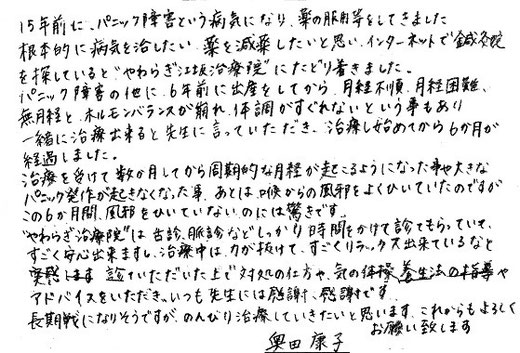 15年前に、パニック障害という病気になり、薬の服用等をしてきました
根本的に病気を治したい、薬を減薬したいと思い、インターネットで鍼灸院
を探していると"やわらぎ江坂治療院"にたどり着きました。
パニック障害の他に、6年前に出産をしてから、月経不順、月経困難、
無月経と、ホルモンバランスが崩れ、体調がすぐれないという事もあり
一緒に治療出来ると先生に言っていただき、治療し始めてから6か月が
経過しました。
治療を受けて数か月してから周期的な月経が起こるようになった事や大きな
パニック発作が起きなくなった事、あとは、喉からの風邪をよくひいていたのですが
この6か月間、風邪をひいていないのには驚きです。
"やわらぎ治療院"は、舌診、脈診などしっかり時間をかけて診てもらっていて、
すごく安心出来ますし、治療中は、力が抜けて、すごくリラックス出来ているなと
実感します 診ていただいた上で対処の仕方や、気の体操、養生法の指導や
アドバイスをいただき、いつも先生には感謝、感謝です。
長期戦になりそうですが、のんびり治療していきたいと思います。これからもよろしく
お願い致します
奥田 康子